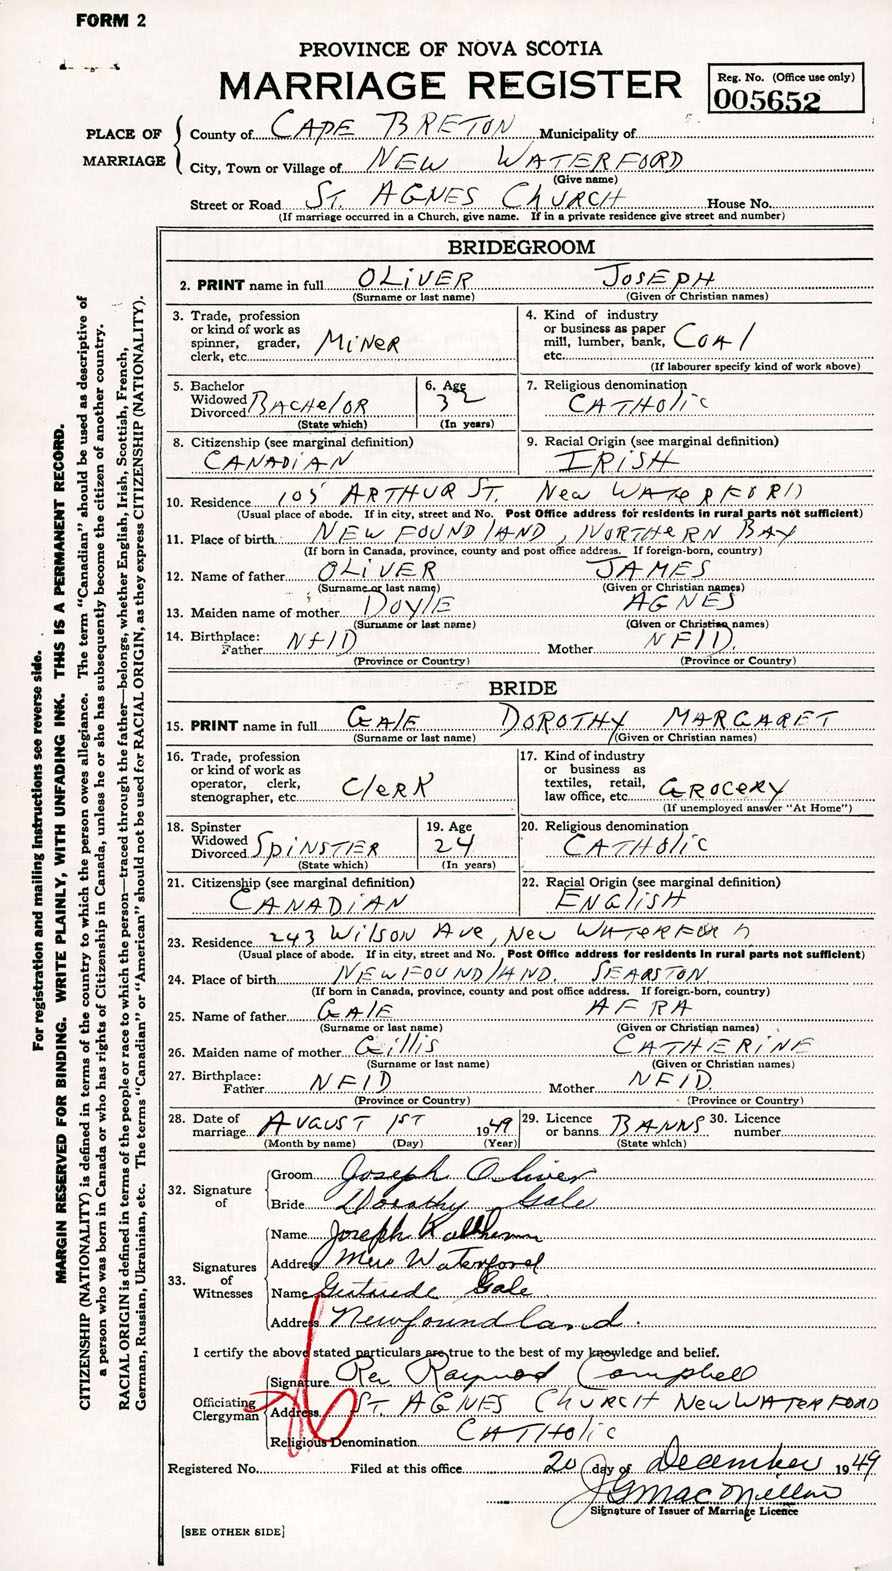 FORM 2
PROVINCE OF NOVA SCOTIA
MARRIAGE REGISTER
Reg. No. (Office use only)
005652
PLACE OF MARRIAGE
County of CAPE BRETON Municipality of
City, Town or Village of NEW WATERFORD
(Give name)
Street or Road ST. AGNES CHURCH House No.
(If marriage occurred in a Church, give name. If in a private residence give street and number)
BRIDEGROOM
2. PRINT name in full OLIVER JOSEPH
(Surname or last name) (Given or Christian names)
3. Trade, profession
or kind of work as
spinner, grader,
clerk, etc. MINER
4. Kind of industry
or business as paper
mill, lumber, bank, COAl
etc.
(If labourer specify kind of work above)
5. Bachelor
Widowed
Divorced BACHelOR
(State which)
6. Age
32
(In years)
7. Religious denomination
CATHOlic
8. Citizenship (see marginal definition)
CANADIAN
9. Racial Origin (see marginal definition)
IRISH
10. Residence 105 ARTHUR ST. New WATERFORD
(Usual place of abode. If in city, street and No. Post Office address for residents in rural parts not sufficient)
11. Place of birth NEWFOUNDlAND, NORTHERN BAY
(If born in Canada, province, county and post office address. If foreign-born, country)
12. Name of father OLIVER JAMES
(Surname or last name) (Given or Christian names)
13. Maiden name of mother DOYlE AGNES
(Surname or last name) (Given or Christian names)
14. Birthplace:
Father NFlD Mother NFlD.
(Province or Country) (Province or Country)
BRIDE
15. PRINT name in full GAlE DOROTHY MARGARET
(Surname or last name) (Given or Christian names)
16. Trade, profession
or kind of work as
operator, clerk,
stenographer, etc. ClerK
17. Kind of industry
or business as
textiles, retail,
law office, etc. GROCERY
(If unemployed answer "At Home")
18. Spinster
Widowed
Divorced SpINSTER
(State which)
19. Age
24
(In years)
20. Religious denomination
CATHOlic
21. Citizenship (see marginal definition)
CANADIAN
22. Racial Origin (see marginal definition)
ENGlISH
23. Residence 243 Wilson Ave, New WATERFORD
(Usual place of abode. If in city, street and No. Post Office address for residents in rural parts not sufficient)
24. Place of birth NEWFOUNDlAND. SEARSTON
(If born in Canada, province, county and post office address. If foreign-born, country)
25. Name of father GAlE AFRA
(Surname or last name) (Given or Christian names)
26. Maiden name of mother Gillis CATHERINE
(Surname or last name) (Given or Christian names)
27. Birthplace:
Father NFlD Mother NFlD.
(Province or Country) (Province or Country)
28. Date of
marriage AUGUST 1ST 1949
(Month by name) (Day) (Year)
29. Licence
or banns BANNS
(State which)
30. Licence
number
32. Signature of
Groom Joseph Oliver
Bride Dorothy Gale
33. Signatures of Witnesses
Name Joseph
Address New Waterford
Name Gertrude Gale
Address Newfoundland.
I certify the above stated particulars are true to the best of my knowledge and belief.
Officiating Clergyman
Signature Rev Raymond Campbell
Address ST. AGNES CHURCH NEW WATERFORD
Religious Denomination CATHOlic
Registered No. Filed at this office 20 day of December 1949
JG MacMillan
Signature of Issuer of Marriage Licence
[SEE OTHER SIDE]
For registration and mailing instructions see reverse side.
MARGIN RESERVED FOR BINDING. WRITE PLAINLY, WITH UNFADING INK. THIS IS A PERMANENT RECORD.
CITIZENSHIP (NATIONALITY) is defined in terms of the country to which the person owes allegiance. The term "Canadian" should be used as descriptive of
a person who was born in Canada or who has rights of Citizenship in Canada, unless he or she has subsequently become the citizen of another country.
RACIAL ORIGIN is defined in terms of the people or race to which the person—traced through the father—belongs, whether English, Irish, Scottish, French,
German, Russian, Ukrainian, etc. The terms "Canadian" or "American" should not be used for RACIAL ORIGIN, as they express CITIZENSHIP (NATIONALITY).